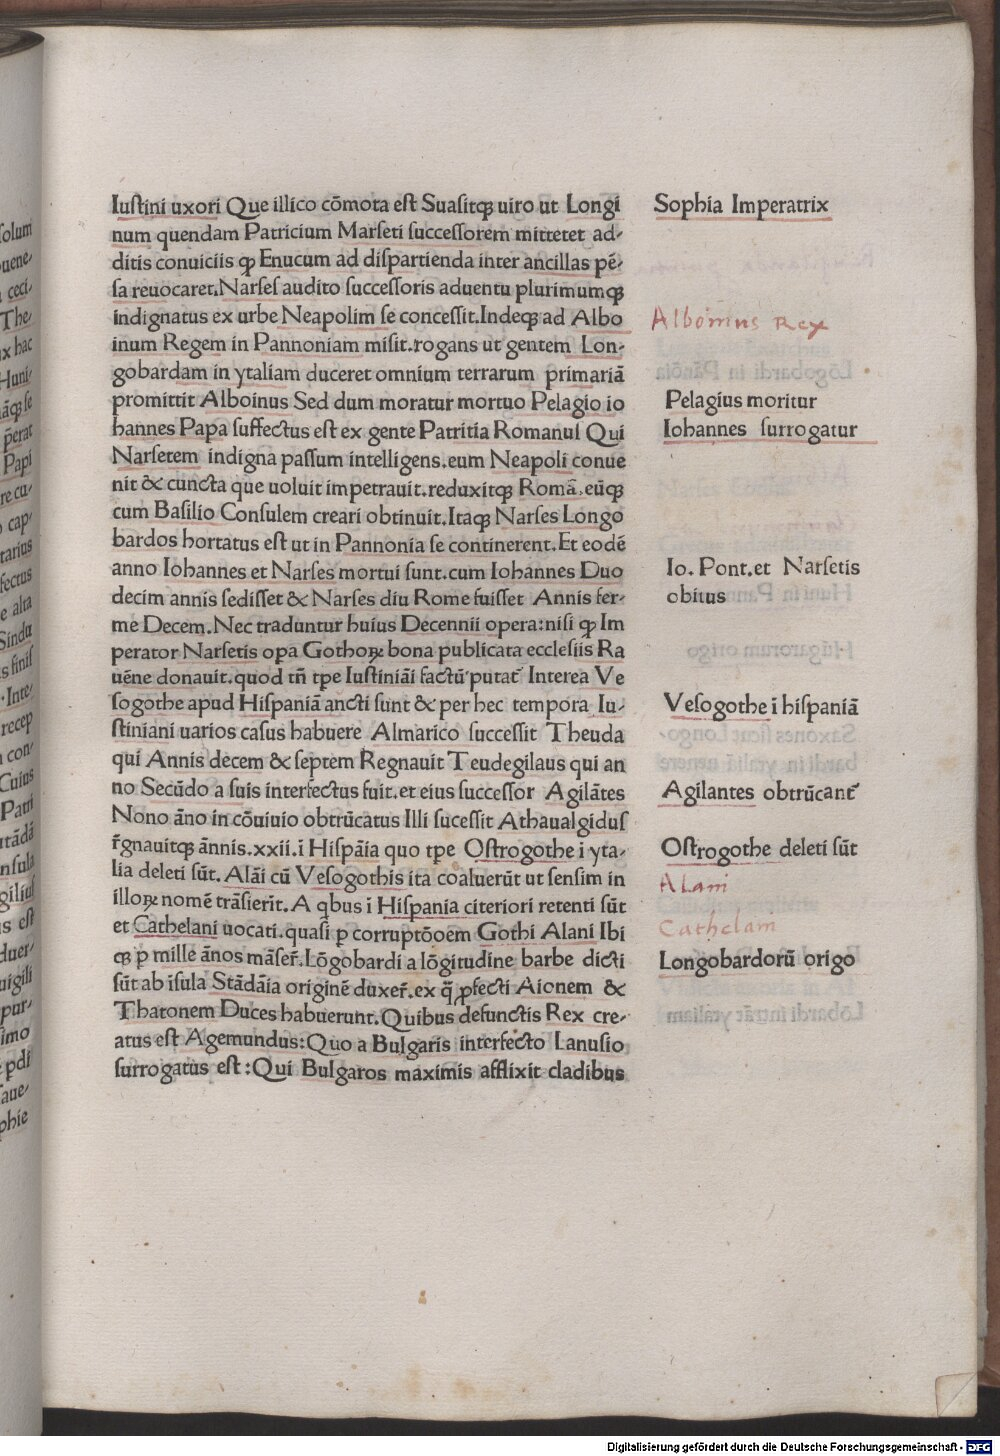 Iustini uxori Que illico cōmota est Suasitqꝫ uiro ut Longi
num quendam Patricium Marseti successorem mittetet ad-
ditis conuiciis ꝙ Enucum ad dispartienda inter ancillas pē-
sa reuocaret. Narses audito successoris aduentu plurimumqꝫ
indignatus ex urbe Neapolim se concessit. Indeqꝫ ad Albo
inum Regem in Pannoniam misit. rogans ut gentem Lon-
gobardam in ytaliam duceret omnium terrarum primariā
promittit Alboinus Sed dum moratur mortuo Pelagio io
hannes Papa suffectus est ex gente Patritia Romanus Qui
Narsetem indigna passum intelligens. eum Neapoli conue
nit & cuncta que uoluit impetrauit. reduxitqꝫ Romā. eūqꝫ
cum Basilio Consulem creari obtinuit. Itaqꝫ Narses Longo
bardos hortatus est ut in Pannonia se continerent. Et eodē
anno Iohannes et Narses mortui sunt. cum Iohannes Duo
decim annis sedisset & Narses diu Rome fuisset Annis fer-
me Decem. Nec traduntur huius Decennii opera: nisi ꝙ Im
perator Narsetis opa Gothoꝝ bona publicata ecclesiis Ra
uēne donauit. quod tn̄ tpe Iustiniāi factū putat᷑ Interea Ve
sogothe apud Hispaniā ancti sunt & per hec tempora Iu-
stiniani uarios casus habuere Almarico successit Theuda
qui Annis decem & septem Regnauit Teudegilaus qui an
no Secūdo a suis interfectus fuit. et eius successor Agilātes
Nono āno in cōuiuio obtrūcatus Illi sucessit Athaualgidus
r̄gnauitqꝫ ānnis. xxii. ī Hispāia quo tpe Ostrogothe i yta-
lia deleti sūt. Alāi cū Vesogothis ita coaluerūt ut sensim in
illoꝝ nomē trāsierūt. A qbus ī Hispania citeriori retenti sūt
et Cathelani uocati. quasi ꝑ corruptōoem Gothi Alani Ibi
qꝫ ꝑ mille ānos māser̄. Lōgobardi a lōgitudine barbe dicti
sūt ab īsula Stādāia originē duxer̄. ex q̄ ꝓfecti Aionem &
Thatonem Duces habuerunt. Quibus defunctis Rex cre-
atus est Agemundus: Quo a Bulgaris interfecto Lanusio
surrogatus est: Qui Bulgaros maximis afflixit cladibus
Sophia Imperatrix
Alboinus Rex
Pelagius moritur
Iohannes surrogatur
Io. Pont. et Narsetis
obitus
Vesogothe ī hispaniā
Agilantes obtrūcant᷑
Ostrogothe deleti sūt
Alani
Cathelani
Longobardorū origo
Digitalisierung gefördert durch die Deutsche Forschungsgemeinschaft - DFG